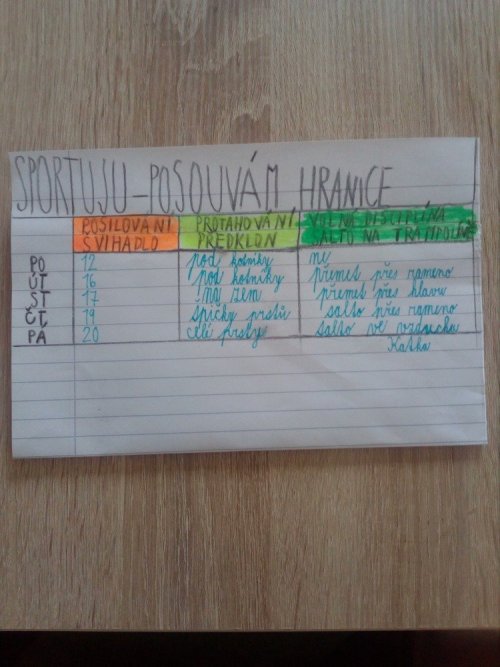 SPORTUJU-POSOUVÁM HRANICE
POSILOVÁNÍ PROTAHOVÁNÍ VOLNÁ DISCIPLÍNA
ŠVIHADLO PŘEDKLON SALTO NA TRAMPOLÍNĚ
PO 12 pod kotníky ne
ÚT 16 pod kotníky přemet přes rameno
ST 17 na zem přemet přes hlavu
ČT 19 špičky prstů salto přes rameno
PÁ 20 celé prsty salto ve vzduchu
Katka